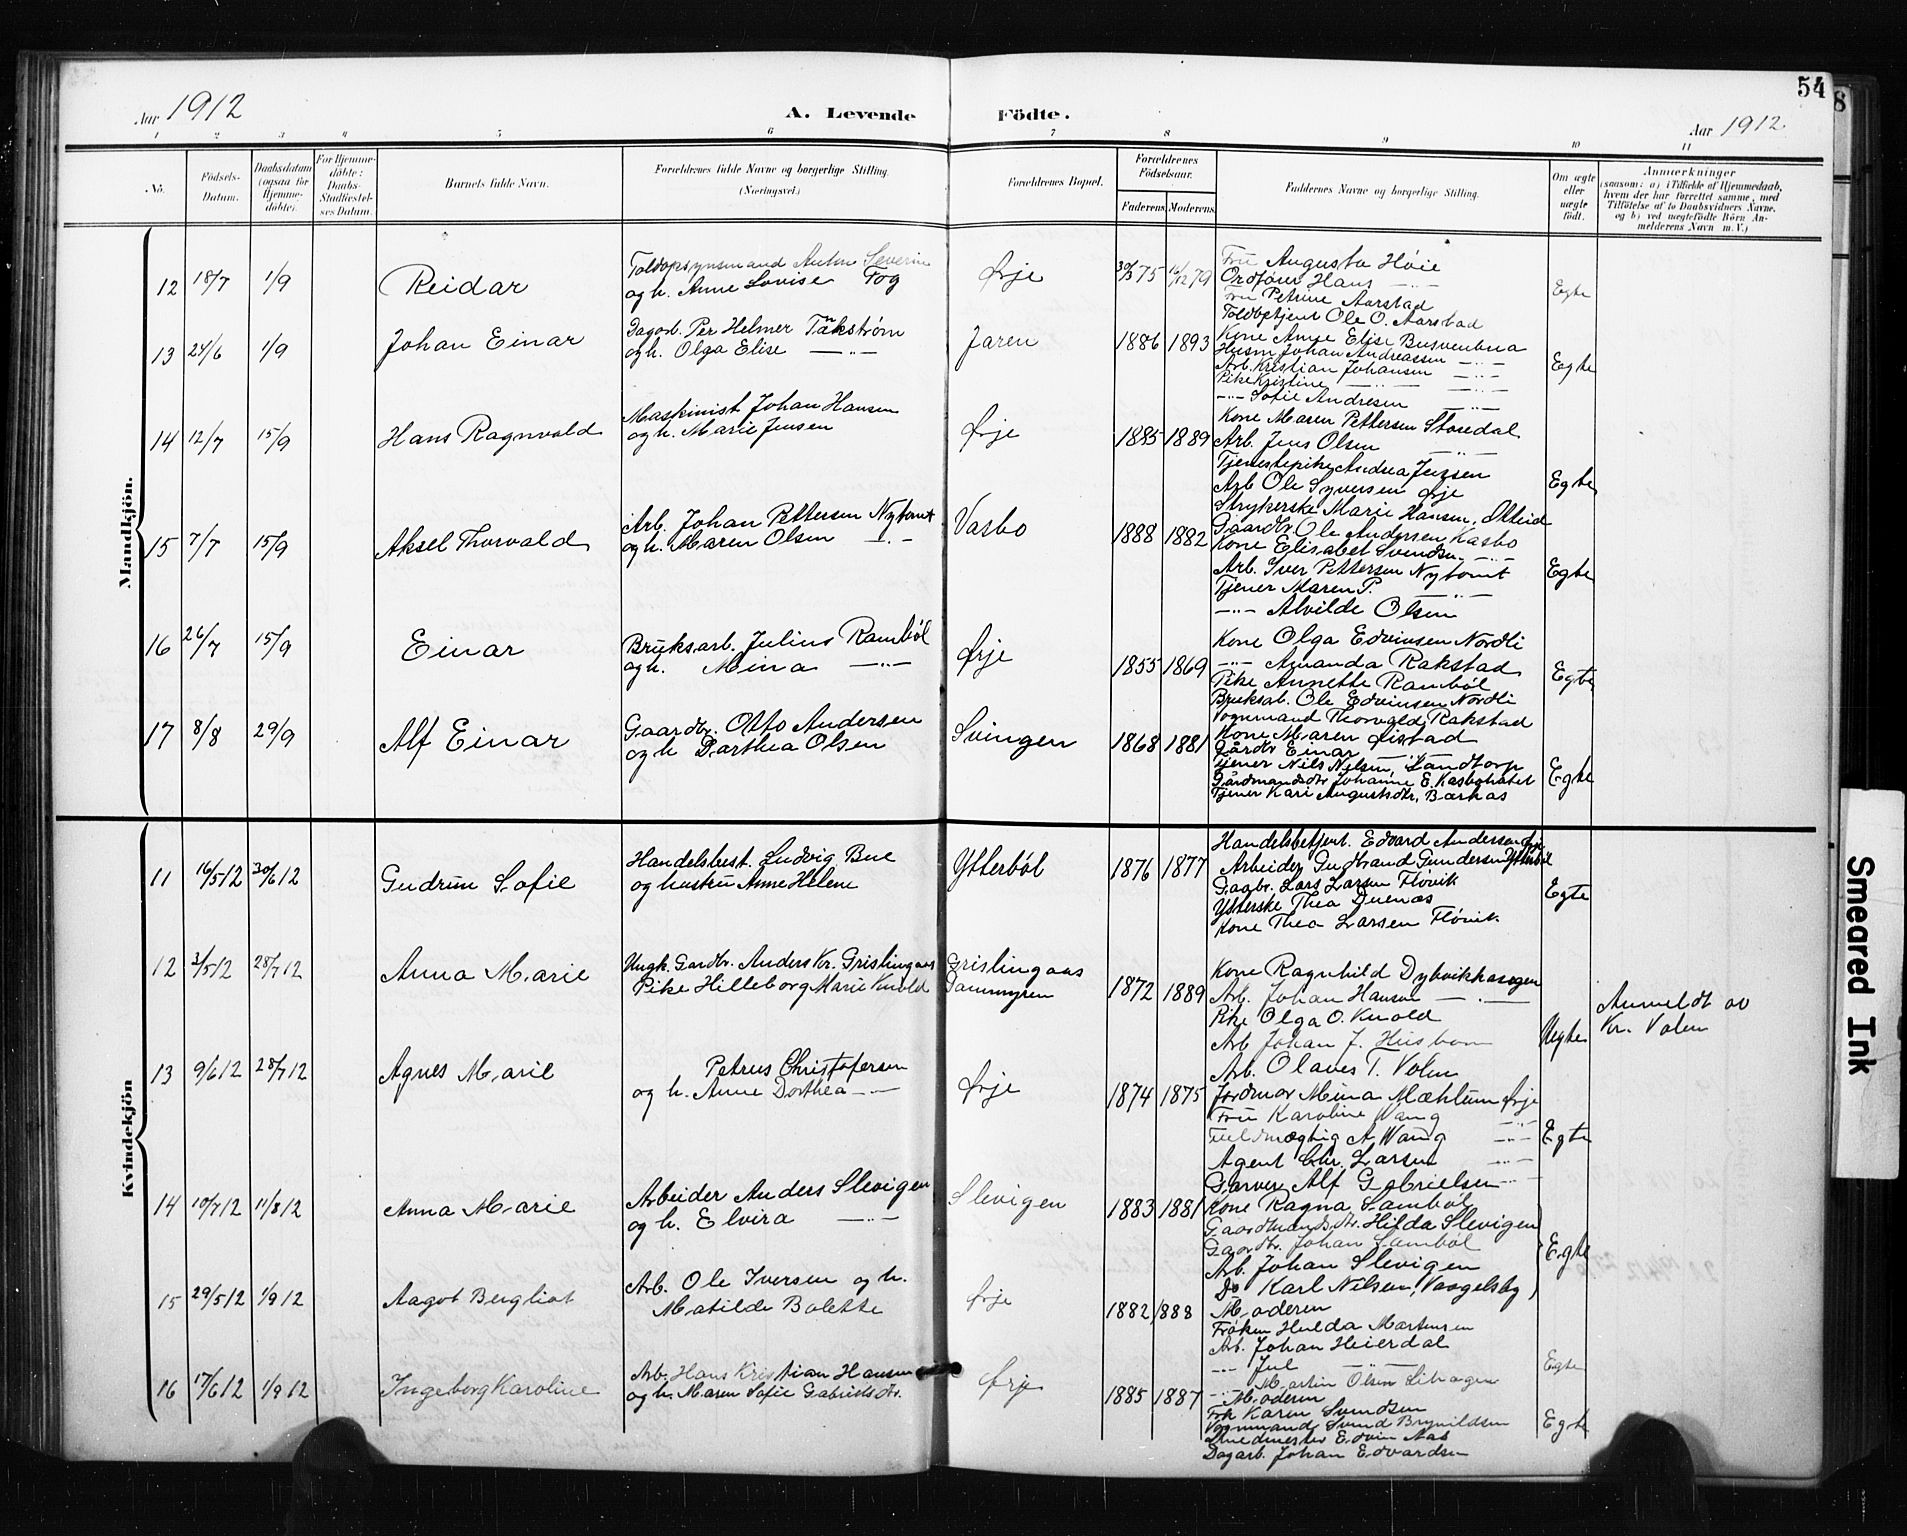 54
8
Aar 1912
A. Levende Födte.
Aar 1912
1 2 3 4 5 6 7 8 9 10 11
No.
Födsels-Datum.
Daabsdatum (ogsaa for Hjemme-döbte).
For Hjemme-döbte: Daabs-Stadfæstel-ses Datum.
Barnets fulde Navn.
Forældrenes fulde Navne og borgerlige Stilling.
(Næringsvei.)
Forældrenes Bopæl.
Forældrenes Födselsaar.
Faderens. Moderens.
Faddernes Navne og borgerlige Stilling.
Om ægte eller uægte födt.
Anmærkninger
(saasom: a) i Tilfælde af Hjemmedaab,
hvem der har forrettet samme, med
Tilföielse af to Daabsvidners Navne,
og b) ved uægtefödte Börn An-
melderens Navn m. V.)
Mandkjön.
12 18/7 1/9 Reidar
Toldopsynsmand Anton Severin
og h. Anne Lovise Fog
Ørje
30/3 75 16/12 79
Fru Augusta Höie
Ordfører Hans —"—
Fru Petrine Aarstad
Toldbetjent Ole O. Aarstad
Egte
13 24/6 1/9 Johan Einar
Dagarb. Per Helmer Tankström
og h. Olga Elise —"—
Jaren
1886 1893
Kone Anne Elise Busvenbua
Husm Johan Andreassen —"—
Arb. Kristian Johansen —"—
Pike Kristine —"— —"—
—"— Sofie Andresen —"—
Egte
14 12/7 15/9 Hans Ragnvald
Maskinist Johan Hansen
og h. Marie Jensen
Ørje
1885 1889
Kone Maren Pettersen Storedal
Arb. Jens Olsen —"—
Tjenestepike Andrea Jensen
Arb Ole Syversen Ørje
Strykerske Marie Hansen,
Egte
15 7/7 15/9 Aksel Thorvald
Arb. Johan Pettersen Nytomt
og h. Maren Olsen —"—
Vasbo
1888 1882
Gaardbr Ole Andersen Kasbo
Kone Elisabet Svendsen —"—
Arb. Iver Pettersen Nytomt
Tjener Maren P. —"—
—"— Alvilde Olsen
Egte
16 26/7 15/9 Einar
Bruksarb. Julius Rambøl
og h. Mina —"—
Ørje
1855 1869
Kone Olga Edvinsen Nordli
—"— Amanda Rakstad
Pike Annette Rambøl
Bruksab. Ole Edvinsen Nordli
Vognmand Thorvald Rakstad
Egte
17 8/8 29/9 Alf Einar
Gaardbr. Otto Andersen
og h Dorthea Olsen
Svingen
1868 1881
Kone Maren Øistad
Gårdbr Einar —"—
Tjener Nils Nilsen, Sandtorp
Gårdmandsdtr Johanne E. Kasbohatet
Tjener Kari Augustsdtr, Bærkas
Egte
Kvindekjön
11 16/5 12 30/6 12 Gudrun Sofie
Handelsbest. Ludvig Bue
og hustru Anne Helene
Ytterböl
1876 1877
Handelsbetjent. Edvard Andersen Ørje
Arbeider Gudbrand Gundersen Ytterböl
Gaabr. Lars Larsen Flövik
Ytterske Thea Duenæs
Kone Thea Larsen Flövik
Egte
12 3/5 12 28/7 12 Anna Marie
Ungk. Gardbr. Anders Kr. Grislingaas
Pike Hilleborg Marie Knold
Grislingaas
1872 1889
Kone Ragnhild Dybvikhaagen
Arb. Johan Hansen —"—
Pike Olga O. Knold
Arb Johan J. Husbon
Arb. Olaves T. Volen
Uegte
Anmeldt av
Kr. Volen
13 9/6 12 28/7 12 Agnes Marie
Petrus Christofersen
og h. Anne Dorthea —"—
Ørje
1874 1875
Jordmor Mina Mæhlum Ørje
Fru Karoline Wang
Fuldmægtig A Wang —"—
Agent Chr. Larsen —"—
Garver Alf Gabrielsen —"—
Egte
14 10/7 12 11/8 12 Anna Marie
Arbeider Anders Slevigen
og h. Elvira —"—
Slevigen
1883 1881
Kone Ragna Samböl
Gaardmandsdtr. Hilda Slevigen
Gaardbr. Johan Samböl
Arb. Johan Slevigen
Do Karl Nilsen,
Egte
15 29/5 12 1/9 12 Aagot Bergliot
Arb. Ole Iversen og h.
Matilde Bolette
Ørje
1882 1888
Moderen
Frøken Hulda Martensen
Arb. Johan Heierdal
—"— Jul —"—
—"— Martin Olsen Lihagen
Egte
16 17/6 12 1/9 12 Ingeborg Karoline
Arb. Hans Kristian Hansen
og h. Maren Sofie Gabrielsdtr.
Ørje
1885 1887
Moderen
Frk Karen Svendsen
Vognmand Svend Brynildsen
Smedmester Edvin Aas
Dagarb. Johan Edvardsen
Egte
Smeared Ink